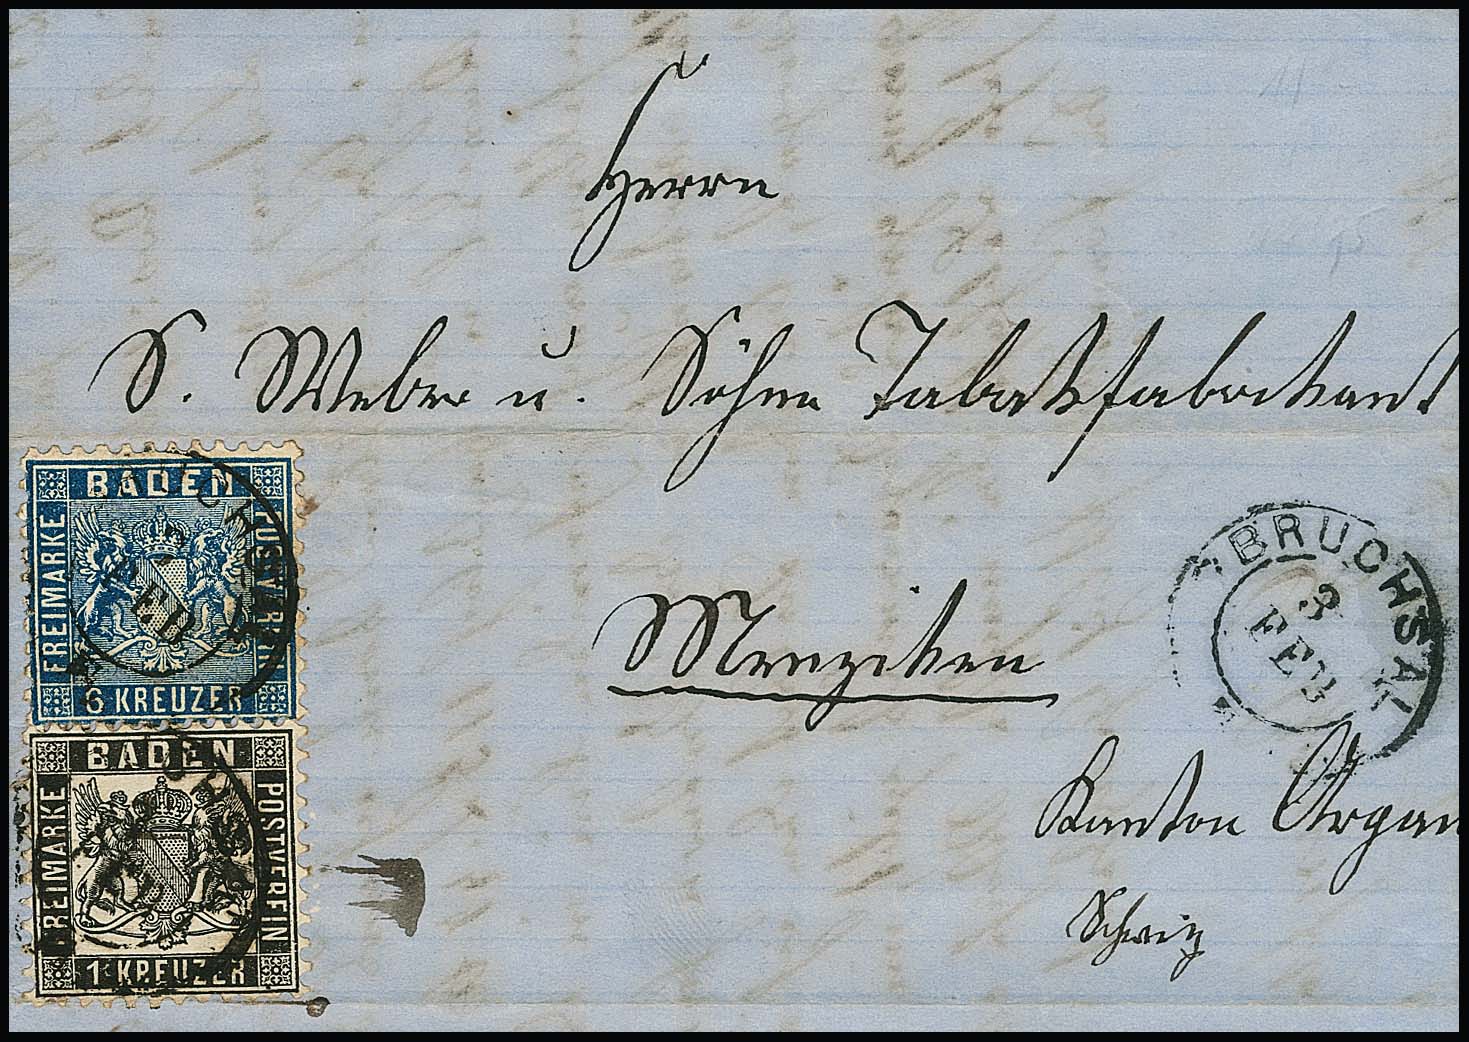 Herrn
S. Weber u. Söhne Tabakfabrikant
BADEN
FREIMARKE
POSTVEREIN
6 KREUZER
BRUCHSAL
3
FEB
Menziken
BADEN
FREIMARKE
POSTVEREIN
1 KREUZER
Kanton Argau
Schweiz